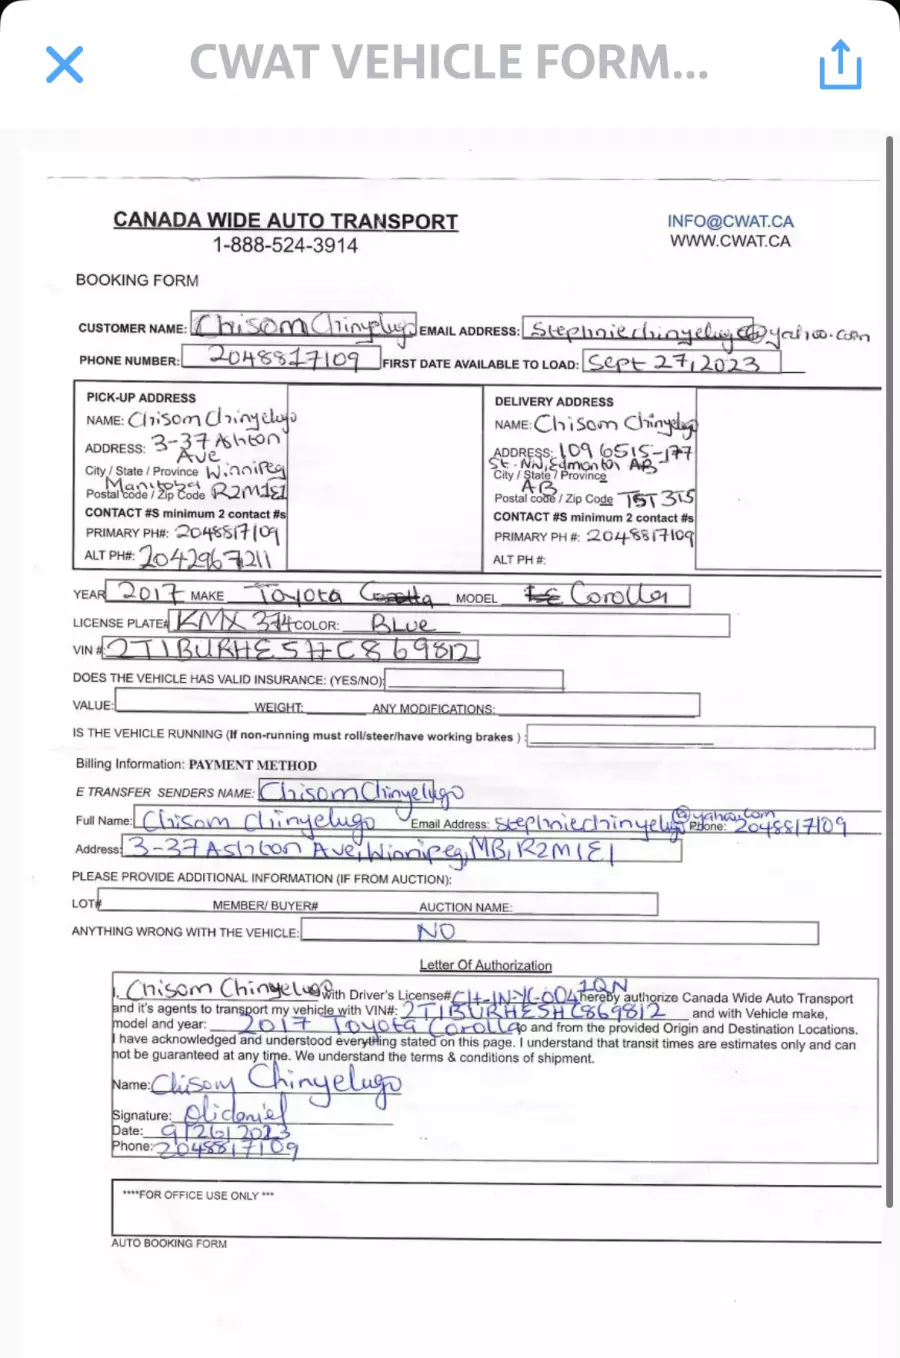 CWAT VEHICLE FORM...
CANADA WIDE AUTO TRANSPORT
1-888-524-3914
INFO@CWAT.CA
WWW.CWAT.CA
BOOKING FORM
CUSTOMER NAME: Chisom Chinyelugo EMAIL ADDRESS: Stephniechinyelugo@yahoo.com
PHONE NUMBER: 2048817109 FIRST DATE AVAILABLE TO LOAD: Sept 27, 2023
PICK-UP ADDRESS
NAME: Chisom Chinyelugo
ADDRESS: 3-37 Ashton
Ave
City / State / Province Winnipeg
Manitoba
Postal code / Zip Code R2M1E1
CONTACT #S minimum 2 contact #s
PRIMARY PH#: 2048817109
ALT PH#: 2042967211
DELIVERY ADDRESS
NAME: Chisom Chinyelugo
ADDRESS: 109 6515-177
St. NW, Edmonton AB
City / State / Province
AB
Postal code / Zip Code T5T 3T5
CONTACT #S minimum 2 contact #s
PRIMARY PH #: 2048817109
ALT PH #:
YEAR 2017 MAKE Toyota Corolla MODEL LE Corolla
LICENSE PLATE# KMX 374 COLOR: Blue
VIN # 2T1BURHE5HC869812
DOES THE VEHICLE HAS VALID INSURANCE: (YES/NO)
VALUE: WEIGHT: ANY MODIFICATIONS:
IS THE VEHICLE RUNNING (If non-running must roll/steer/have working brakes ) :
Billing Information: PAYMENT METHOD
E TRANSFER SENDERS NAME: Chisom Chinyelugo
Full Name: Chisom Chinyelugo Email Address: stephniechinyelugo@yahoo.com Phone: 2048817109
Address: 3-37 Ashton Ave, Winnipeg, MB, R2M1E1
PLEASE PROVIDE ADDITIONAL INFORMATION (IF FROM AUCTION):
LOT# MEMBER/ BUYER# AUCTION NAME:
ANYTHING WRONG WITH THE VEHICLE: NO
Letter Of Authorization
I, Chisom Chinyelugo with Driver's License# CH-IN-YC-0041QN hereby authorize Canada Wide Auto Transport
and it's agents to transport my vehicle with VIN#: 2T1BURHE5HC869812 and with Vehicle make,
model and year: 2017 Toyota Corolla to and from the provided Origin and Destination Locations.
I have acknowledged and understood everything stated on this page. I understand that transit times are estimates only and can
not be guaranteed at any time. We understand the terms & conditions of shipment.
Name: Chisom Chinyelugo
Signature:
Date: 9/26/2023
Phone: 2048817109
****FOR OFFICE USE ONLY ***
AUTO BOOKING FORM